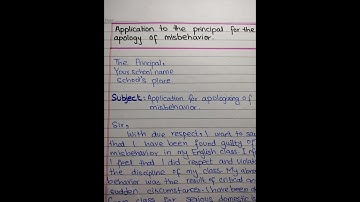 Application to the principal for the
apology of misbehavior.
The Principal,
Your school name
School's place
Subject: Application for apologizing of
misbehavior.
Sir,
With due respect, I want to sa
that I have been found guilty of
misbehavior in my English class. I
I feel that I did respect and viola
the discipline of my class. My
behavior was the result of critical
sudden circumstances. I have been
class for serious domestic